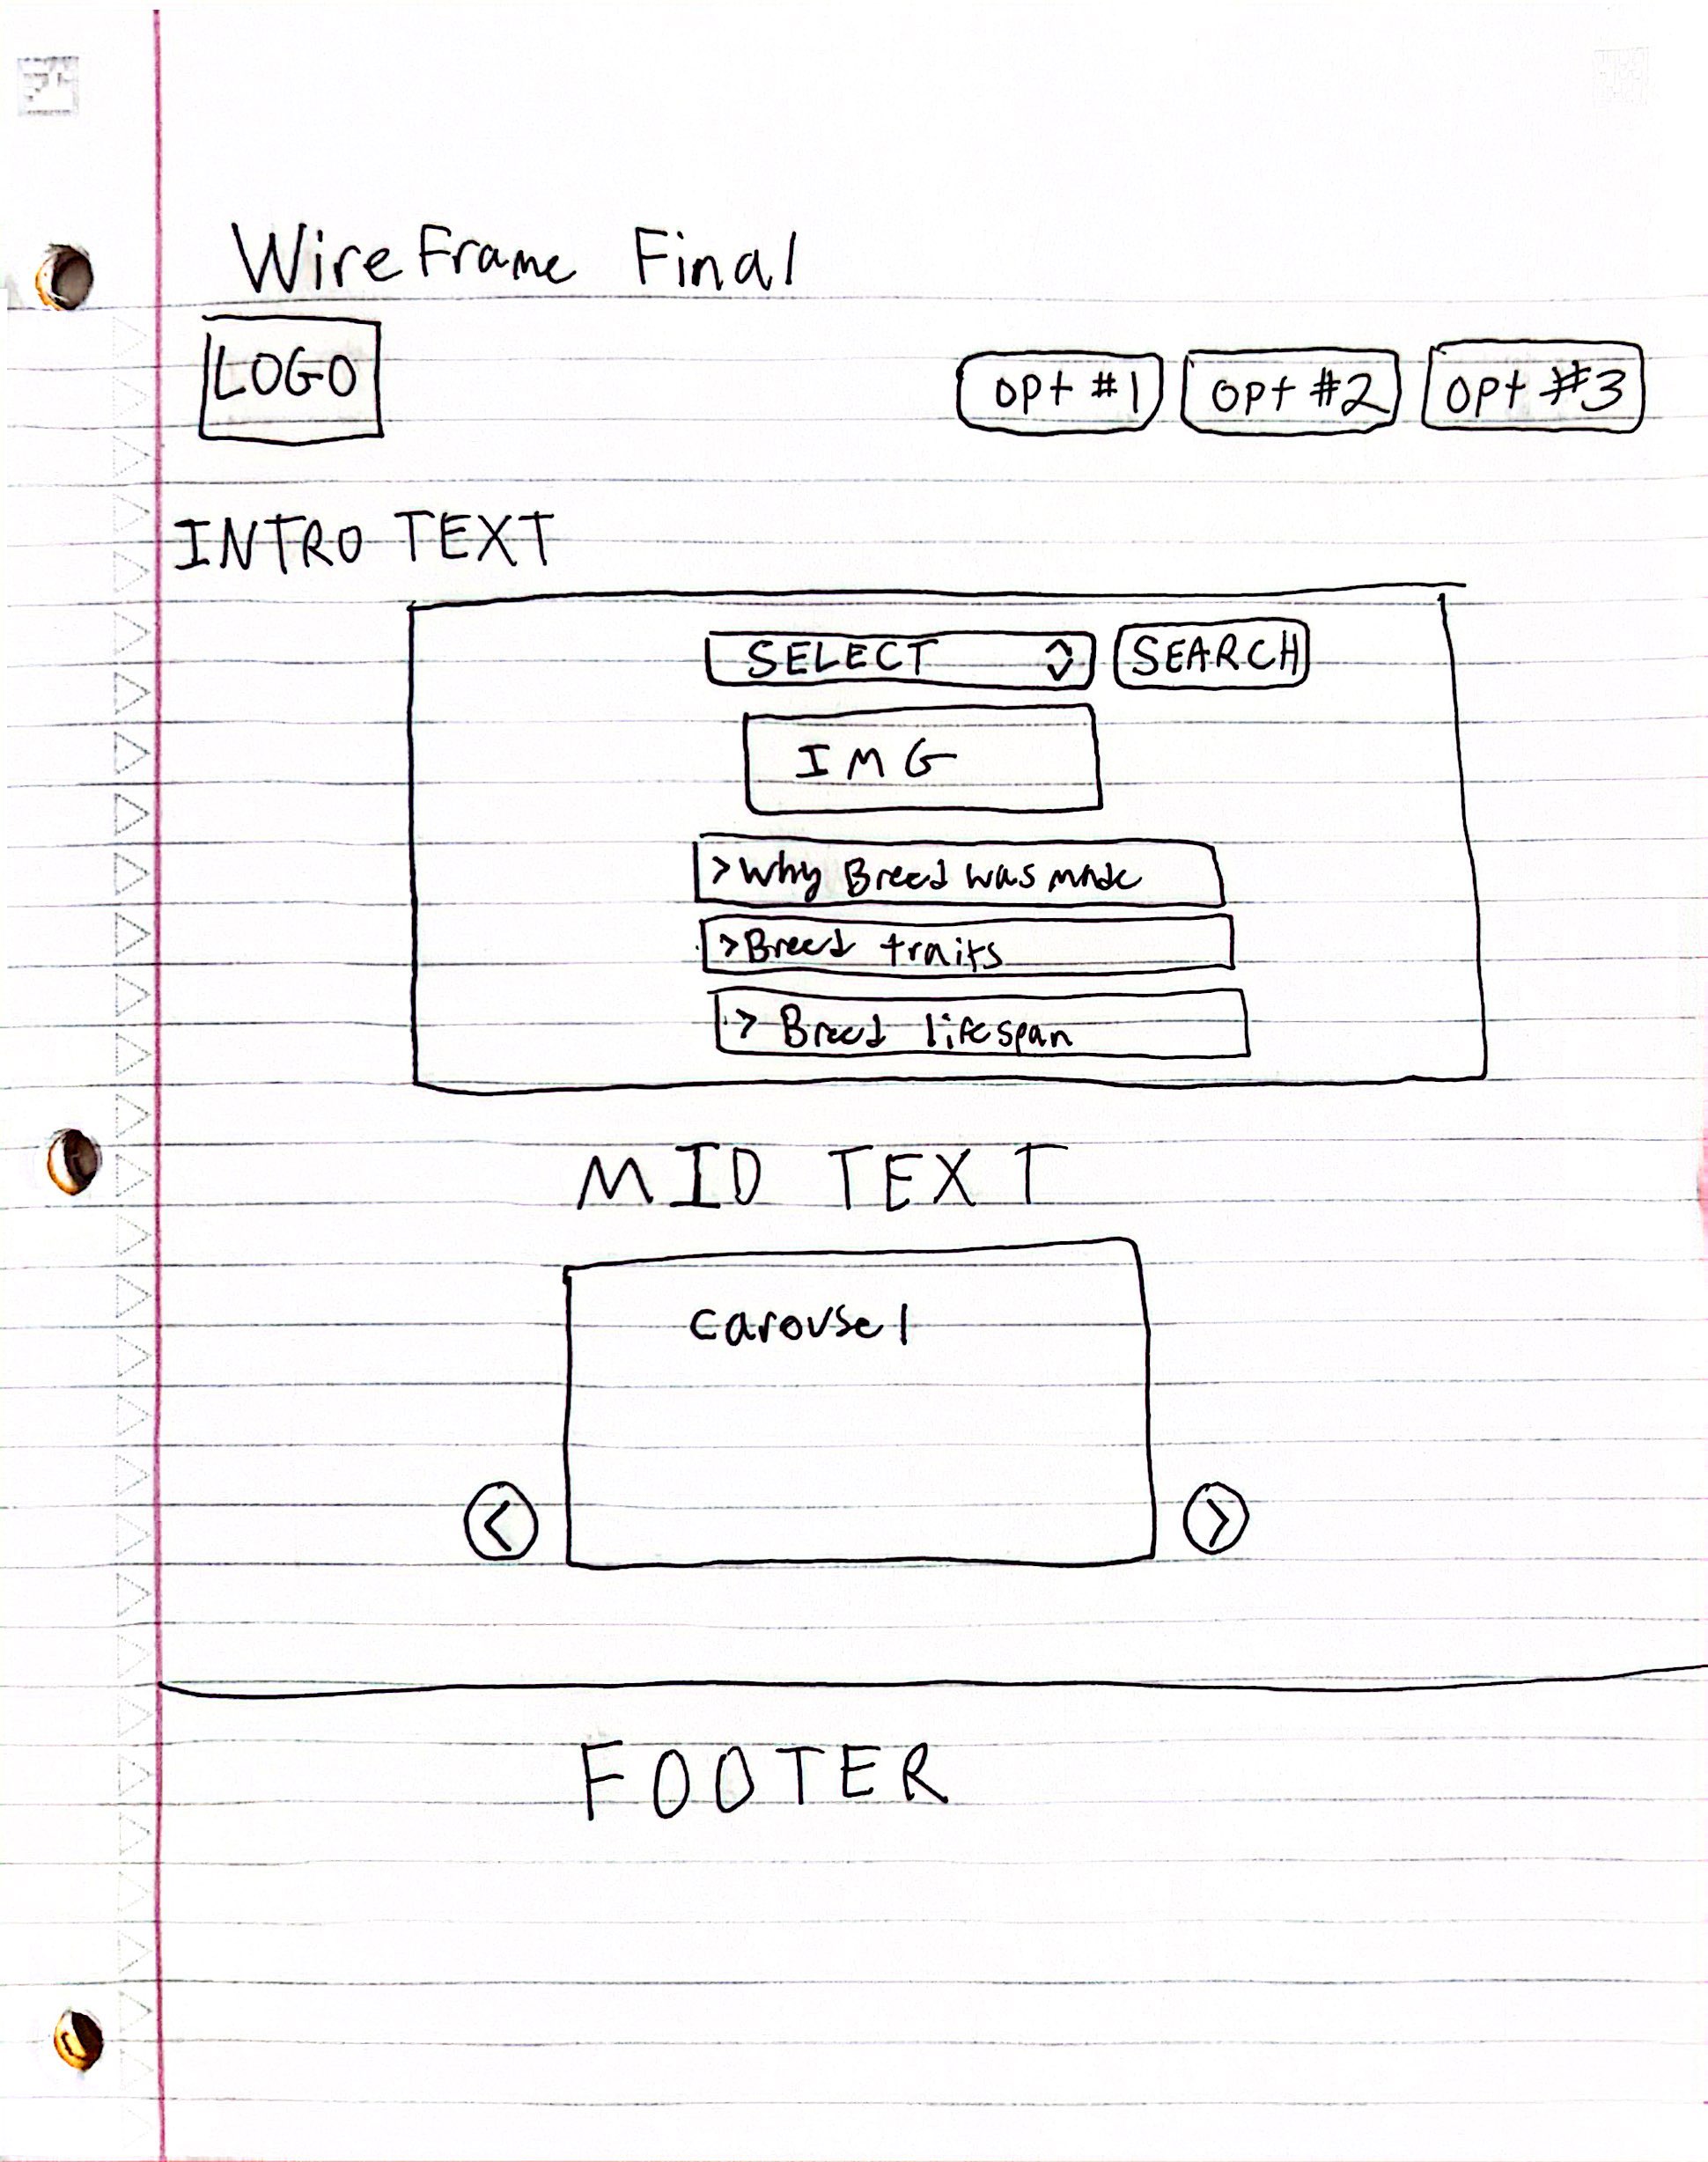 WireFrame Final
LOGO
opt #1
opt #2
opt #3
INTRO TEXT
SELECT
SEARCH
IMG
> Why Breed was made
> Breed traits
> Breed lifespan
MID TEXT
carousel
<
>
FOOTER